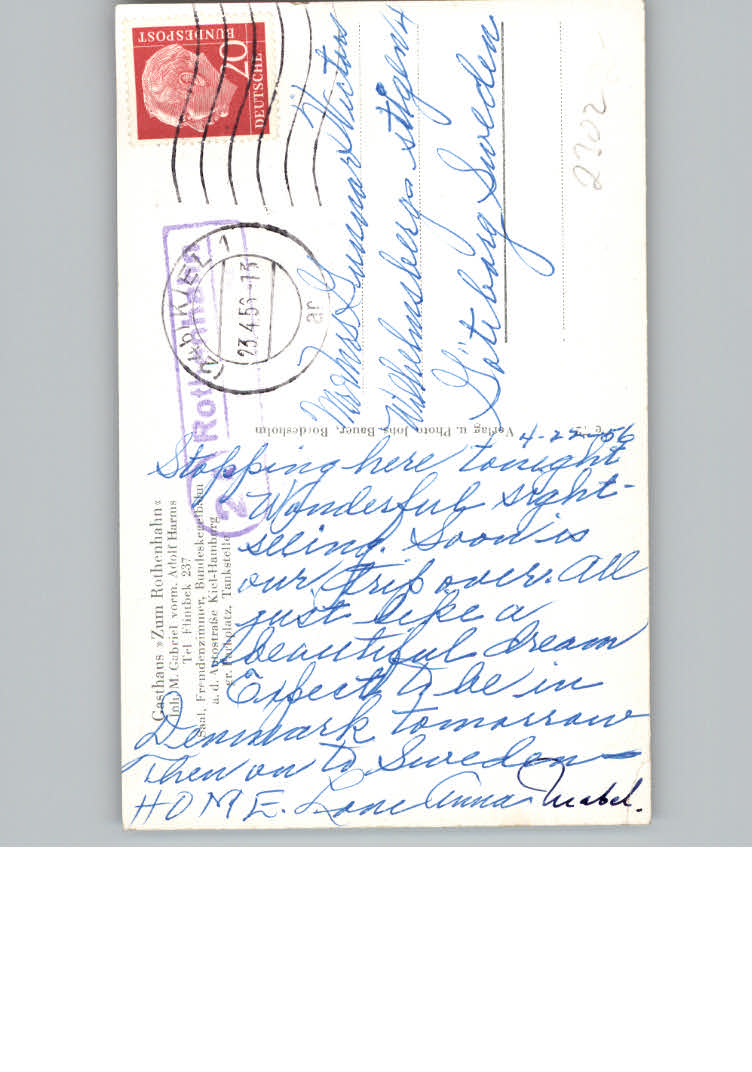 DEUTSCHE
BUNDESPOST
20
KIEL 1
23.4.56-13
ar
Rothenhahn
2302
Gunnar
Wilhelmsbergs
Göteborg Sweden
Verlag u. Photo Johs. Bauer, Bordesholm
Gasthaus »Zum Rothenhahn«
Inh. M. Gabriel vorm. Adolf Harms
Tel Flintbek 237
Saal, Fremdenzimmer, Bundeskegelbahn
a. d. Autostraße Kiel-Hamburg
gr. Parkplatz, Tankstelle
4-22-56
Stopping here tonight
Wonderful sight-
seeing. Soon is
our trip over. All
just like a
beautiful dream
Expect to be in
Denmark tomorrow
Then on to Sweden—
HOME. Love Anna Mabel.